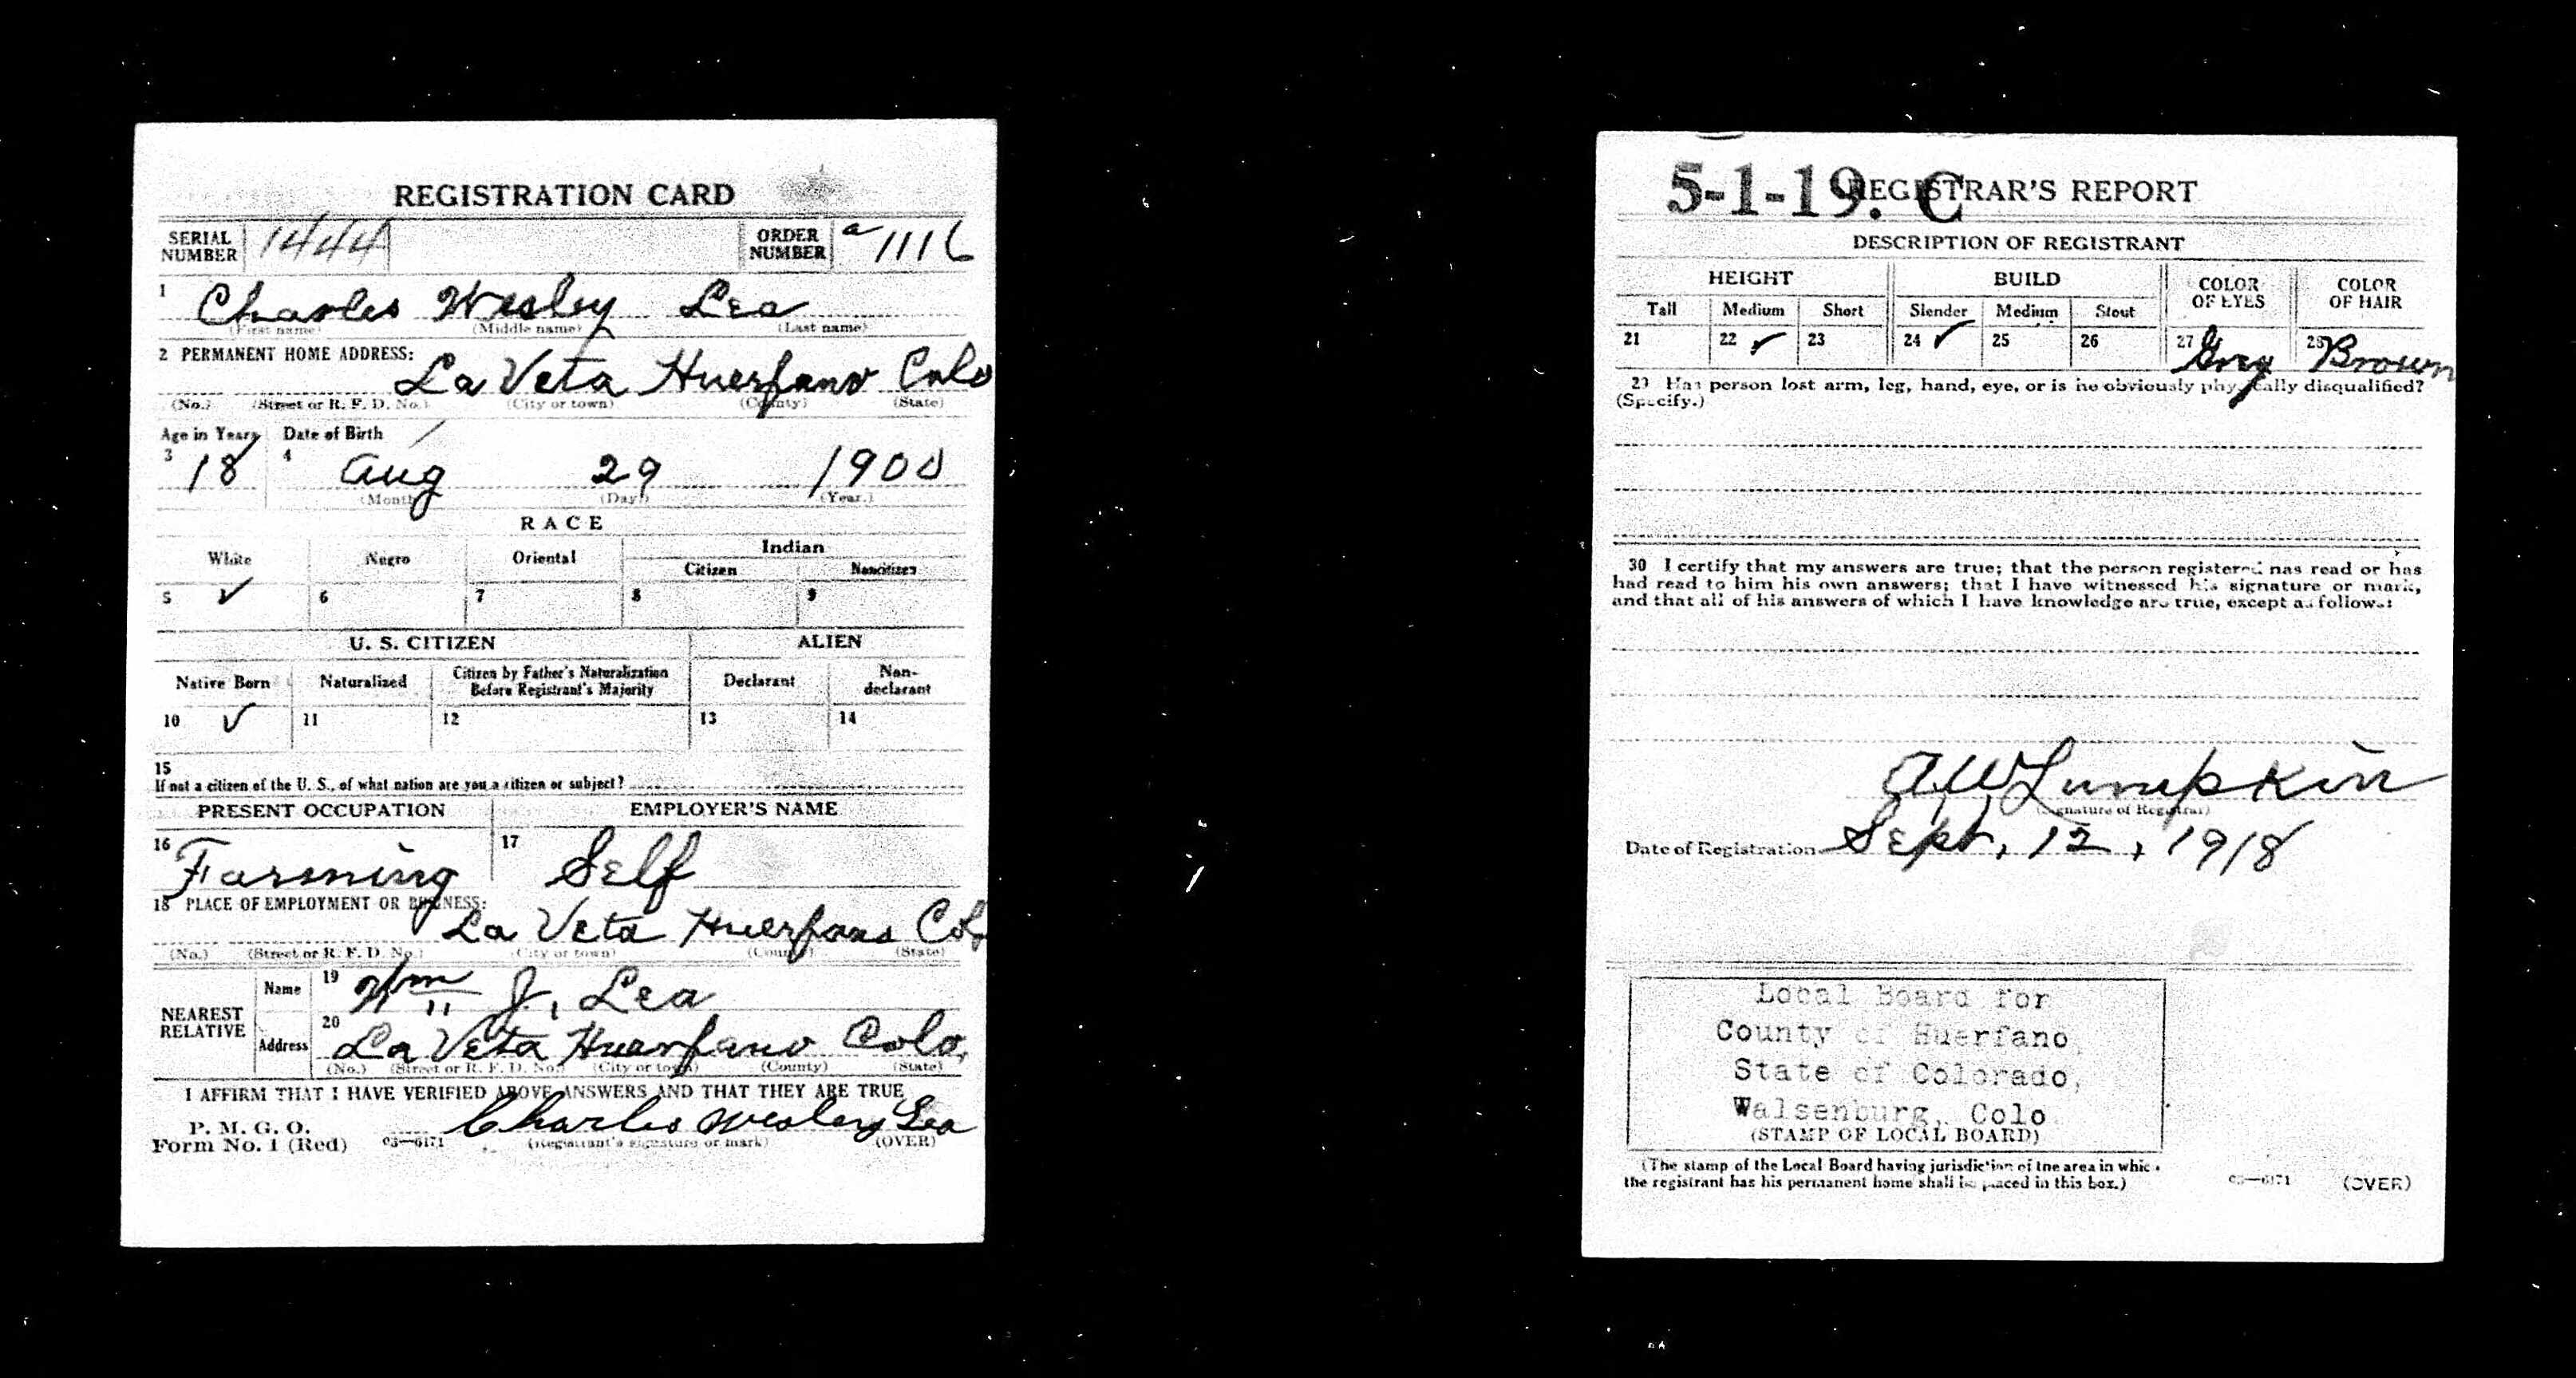 REGISTRATION CARD
SERIAL NUMBER 1444 ORDER NUMBER a 1116
1 Charles Wesley Lea
(First name) (Middle name) (Last name)
2 PERMANENT HOME ADDRESS:
La Veta Huerfano Colo
(No.) (Street or R. F. D. No.) (City or town) (County) (State)
Age in Years Date of Birth
3 18 4 Aug 29 1900
(Month) (Day) (Year.)
RACE
White Negro Oriental Indian
Citizen Noncitizen
5 ✓ 6 7 8 9
U. S. CITIZEN ALIEN
Native Born Naturalized Citizen by Father's Naturalization Before Registrant's Majority Declarant Non-declarant
10 ✓ 11 12 13 14
15
If not a citizen of the U. S., of what nation are you a citizen or subject?
PRESENT OCCUPATION EMPLOYER'S NAME
16 Farming 17 Self
18 PLACE OF EMPLOYMENT OR BUSINESS:
La Veta Huerfano Colo
(No.) (Street or R. F. D. No.) (City or town) (County) (State)
NEAREST RELATIVE
Name 19 Wm J. Lea
Address 20 La Veta Huerfano Colo.
(No.) (Street or R. F. D. No.) (City or town) (County) (State)
I AFFIRM THAT I HAVE VERIFIED ABOVE ANSWERS AND THAT THEY ARE TRUE
P. M. G. O.
Form No. 1 (Red) 03—6171 Charles Wesley Lea
(Registrant's signature or mark) (OVER)
5-1-19. C
REGISTRAR'S REPORT
DESCRIPTION OF REGISTRANT
HEIGHT BUILD COLOR OF EYES COLOR OF HAIR
Tall Medium Short Slender Medium Stout
21 22 ✓ 23 24 ✓ 25 26 27 Grey 28 Brown
29 Has person lost arm, leg, hand, eye, or is he obviously physically disqualified?
(Specify.)
30 I certify that my answers are true; that the person registered has read or has
had read to him his own answers; that I have witnessed his signature or mark,
and that all of his answers of which I have knowledge are true, except as follows:
A W Lumpkin
(Signature of Registrar)
Date of Registration Sept, 12, 1918
Local Board for
County of Huerfano,
State of Colorado,
Walsenburg, Colo
(STAMP OF LOCAL BOARD)
(The stamp of the Local Board having jurisdiction of the area in which
the registrant has his permanent home shall be placed in this box.)
03—6171 (OVER)